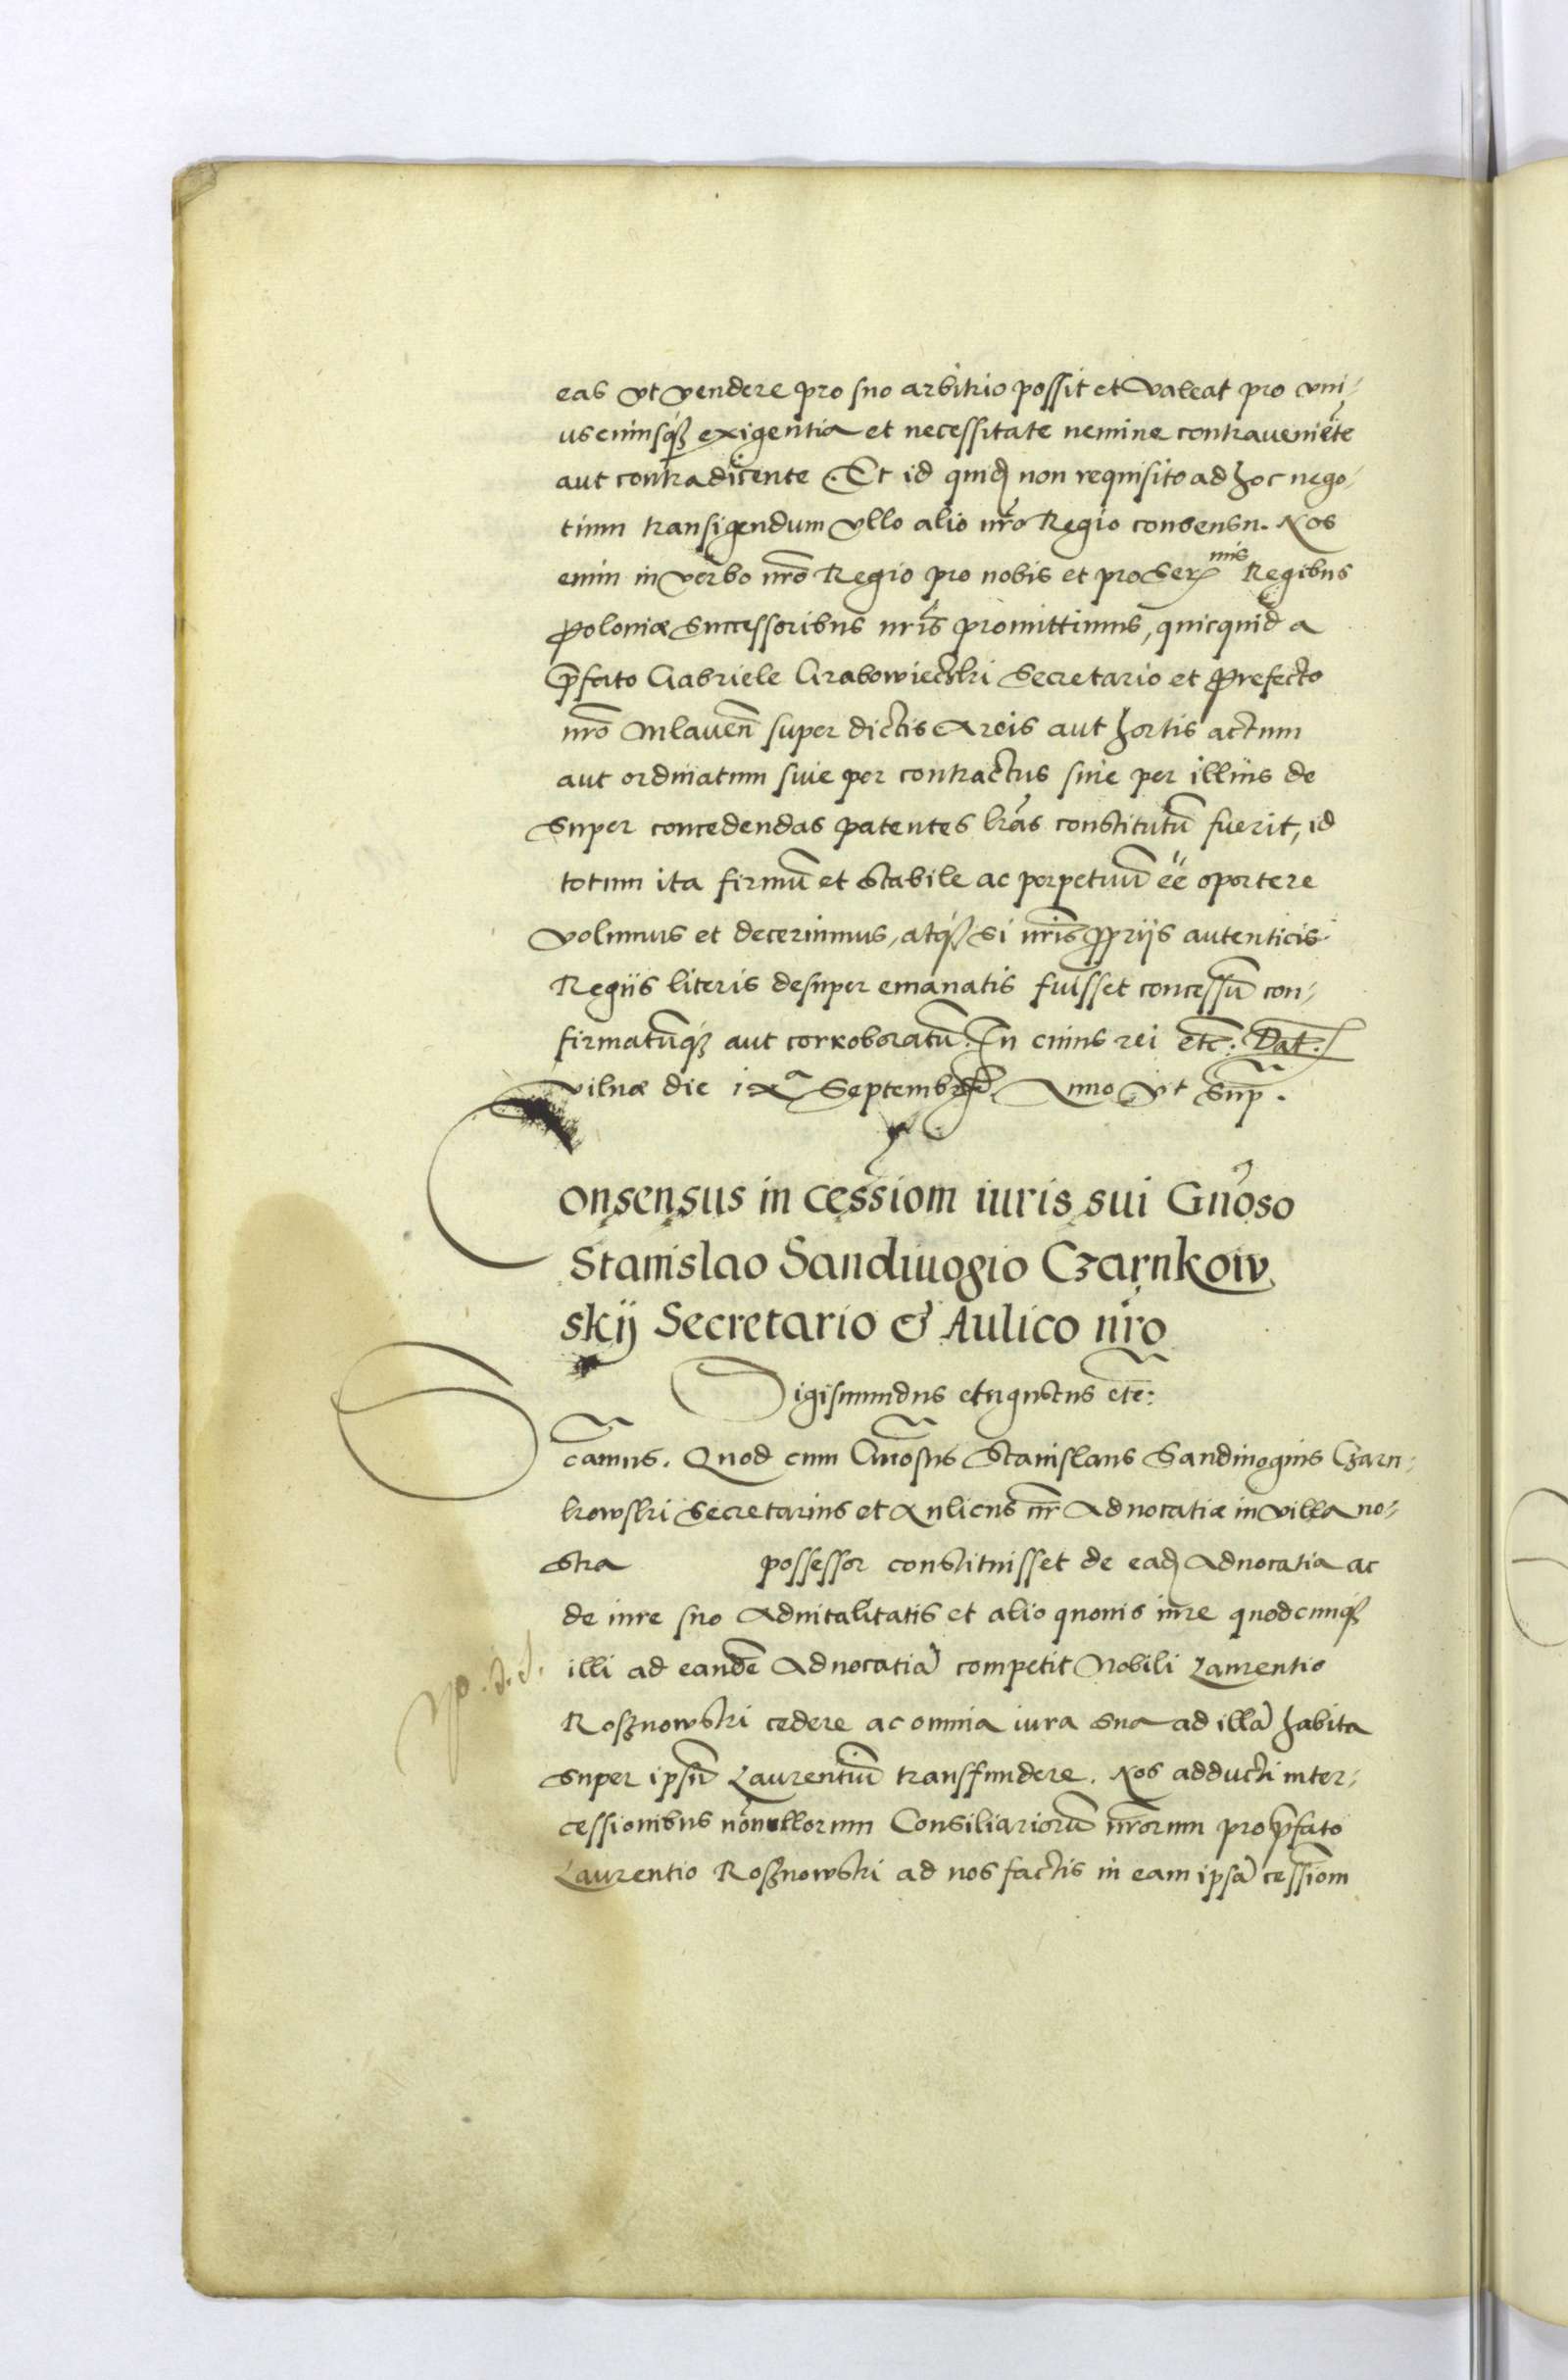 eas vt vendere pro suo arbitrio possit et valeat pro vni-
uscuiusq3 exigentia et necessitate nemine contraueniẽte
aut contradicente. Et id quidẽ non requisito ad hoc nego-
tium transigendum vllo alio nr̃o Regio consensu. Nos
enim in verbo nr̃o Regio pro nobis et pro Ser^mis Regibus
Poloniæ Successoribus nr̃is promittimus, quicquid a
p̃fato Gabriele Grabowieczki Secretario et Prefecto
nr̃o Mlaueñ super dictis Areis aut hortis actum
aut ordinatum siue per contractus siue per illius de
super concedendas patentes lr̃as constitutũ fuerit, id
totum ita firmũ et stabile ac perpetuũ eẽ oportere
volumus et decernimus, atq3 si nr̃is proprijs autenticis
Regiis literis desuper emanatis fuisset concessũ con-
firmatũq3 aut corroboratũ. In cuius rei etc̃: Dat̃.
Vilnæ die ixª Septembris Anno vt Sup̃.
Consensus in cessiom̃ iuris sui Gñoso
Stanislao Sandiuogio Czarnkow
skij Secretario & Aulico nr̃o
Sigismundus Augustus etc̃:
S cam̃us. Quod cum Gñosus Stanislaus Sandiuogius Czarn-
kowski Secretarius et Aulicus nr̃ Aduocatiæ in villa no-
stra possessor constituisset de eadẽ Aduocatia ac
de iure suo Aduitalitatis et alio quouis iure quodcunq3
illi ad eandẽ Aduocatiã competit Nobili Laurentio
Roßnowski cedere ac omnia iura sua ad illã habita
super ipsũ Laurentiũ transfundere. Nos adducti inter-
cessionibus nõnullorum Consiliariorũ nr̃orum pro p̃fato
Laurentio Roßnowski ad nos factis in eam ipsã cessiom̃